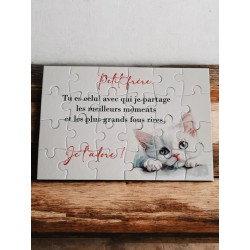 Petit frère,
Tu es celui avec qui je partage
les meilleurs moments
et les plus grands fous rires.
Je t'adore !